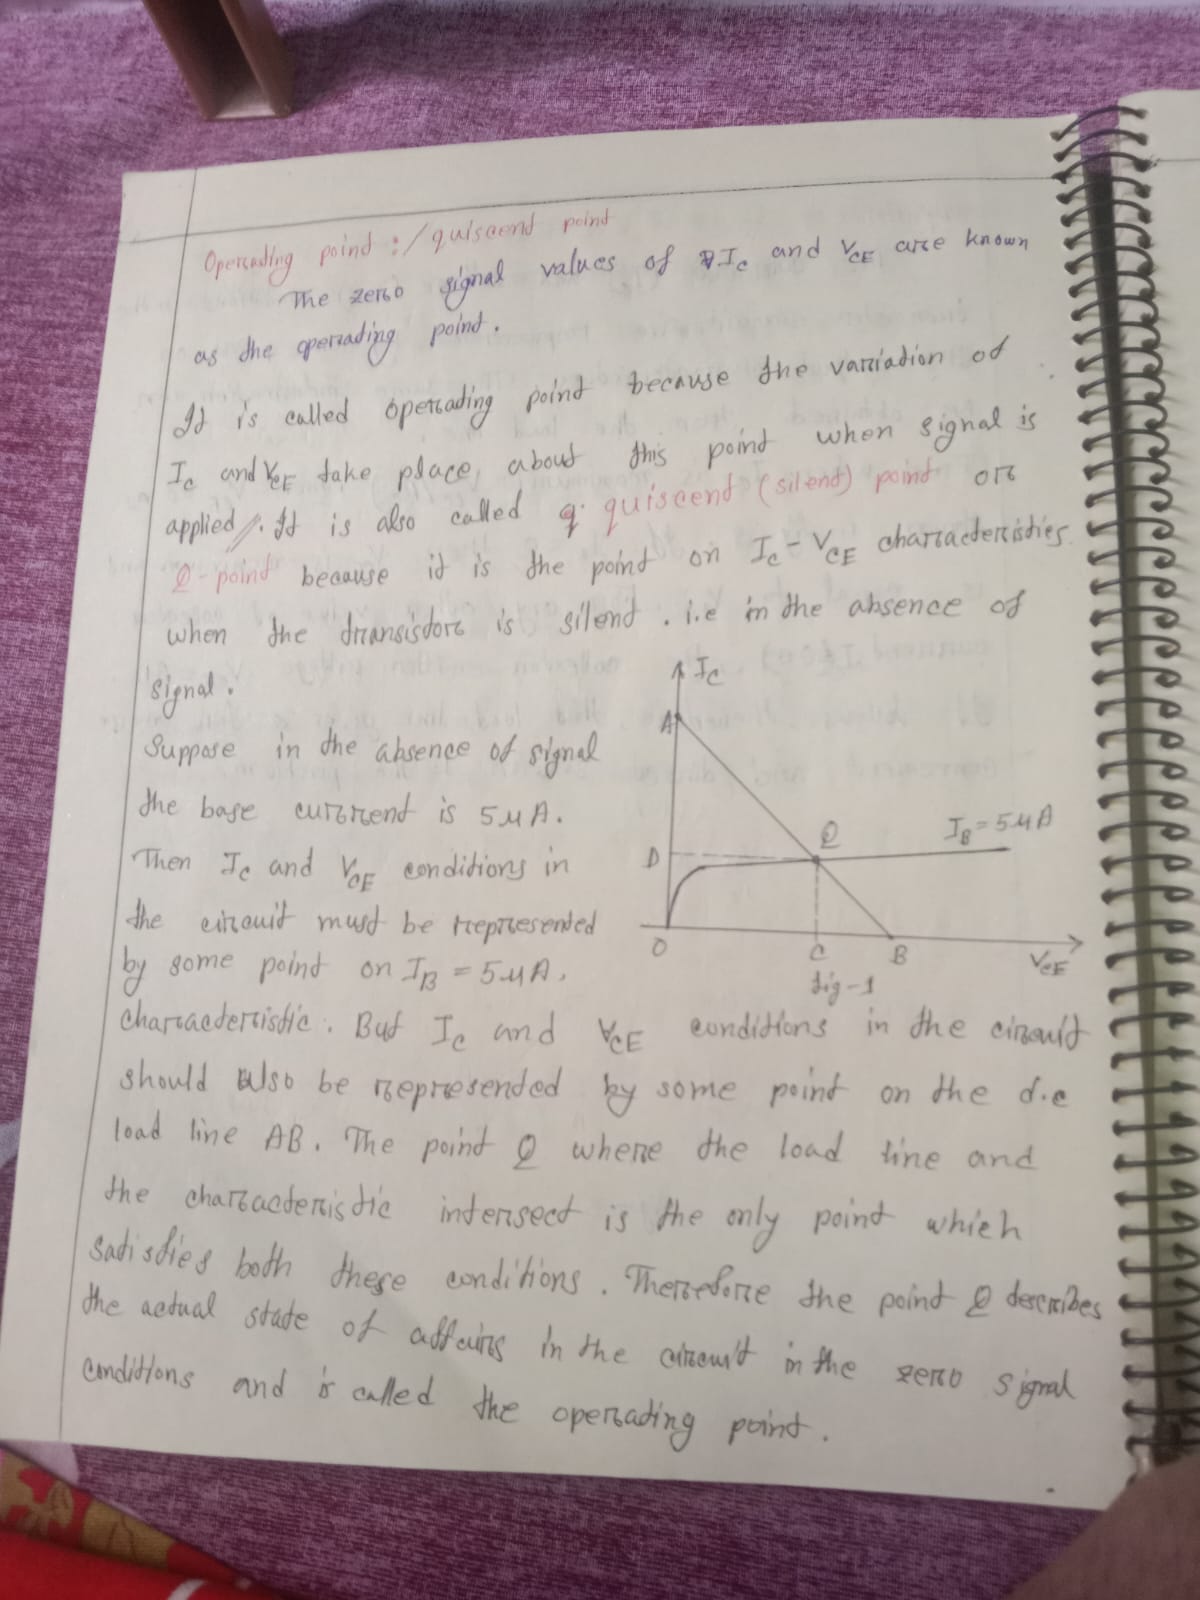 Operating point :/ quiscent point
The zero signal values of Ic and VCE are known
as the operating point.
It is called operating point because the variation of
Ic and VCE take place, about this point when signal is
applied. It is also called q. quiscent (silent) point or
Q-point because it is the point on Ic - VCE characteristics
when the transistor is silent. i.e in the absence of
signal.
Suppose in the absence of signal
the base current is 5μA.
Then Ic and VCE conditions in
the circuit must be represented
by some point on IB = 5μA.
Ic
A
Q
IB = 5μA
D
O
C
B
VCE
fig-1
characteristic. But Ic and VCE conditions in the circuit
should also be represented by some point on the d.c
load line AB. The point Q where the load line and
the characteristic intersect is the only point which
satisfies both these conditions. Therefore the point Q describes
the actual state of affairs in the circuit in the zero signal
conditions and is called the operating point.